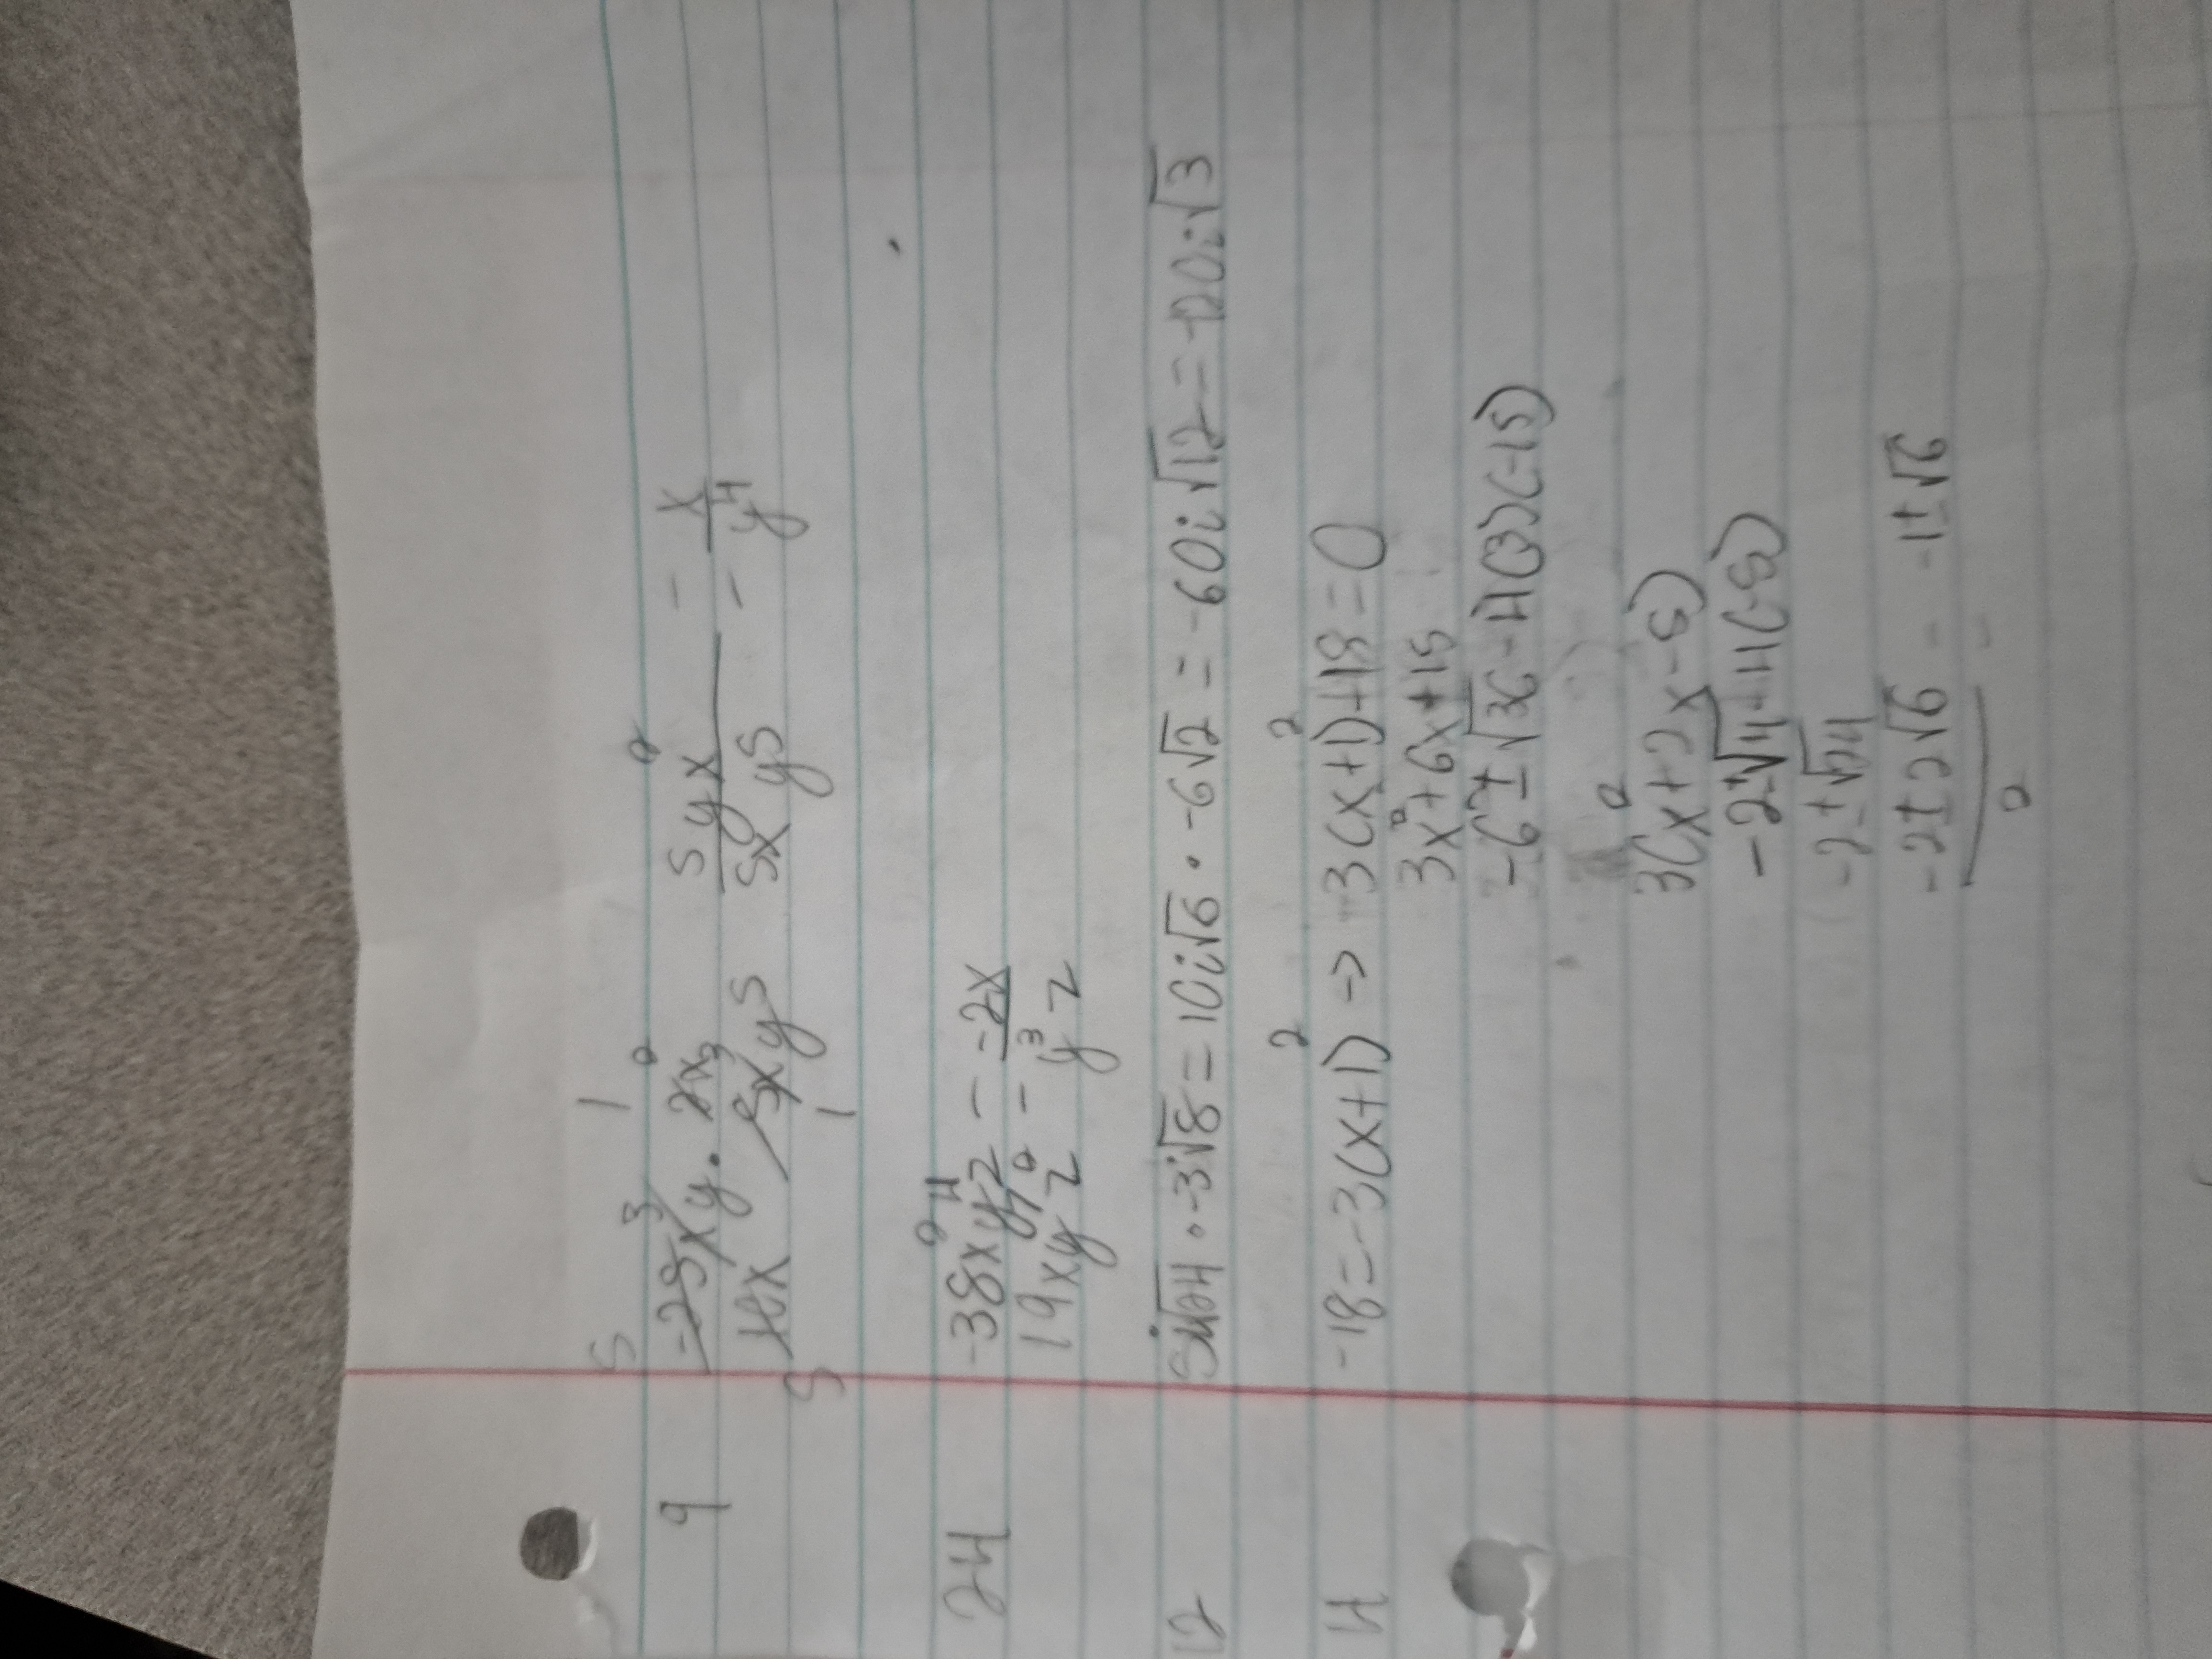 9 -25x³y/10x · 2x²/5x³y⁵ 5yx²/5xy⁵ = x/y⁴
5 1
5 1
24 -38x²y⁴z/19xy⁷z² = -2x/y³z
12 5i√24 · -3√8 = 10i√6 · -6√2 = -60i√12 = -120i√3
4 -18=-3(x+1)² -> 3(x+1)²+18=0
3x²+6x+15
-6±√36-4(3)(-15)
3(x²+2x-5)
-2±√4-4(-5)
-2±√24
-2±2√6/2 = -1±√6